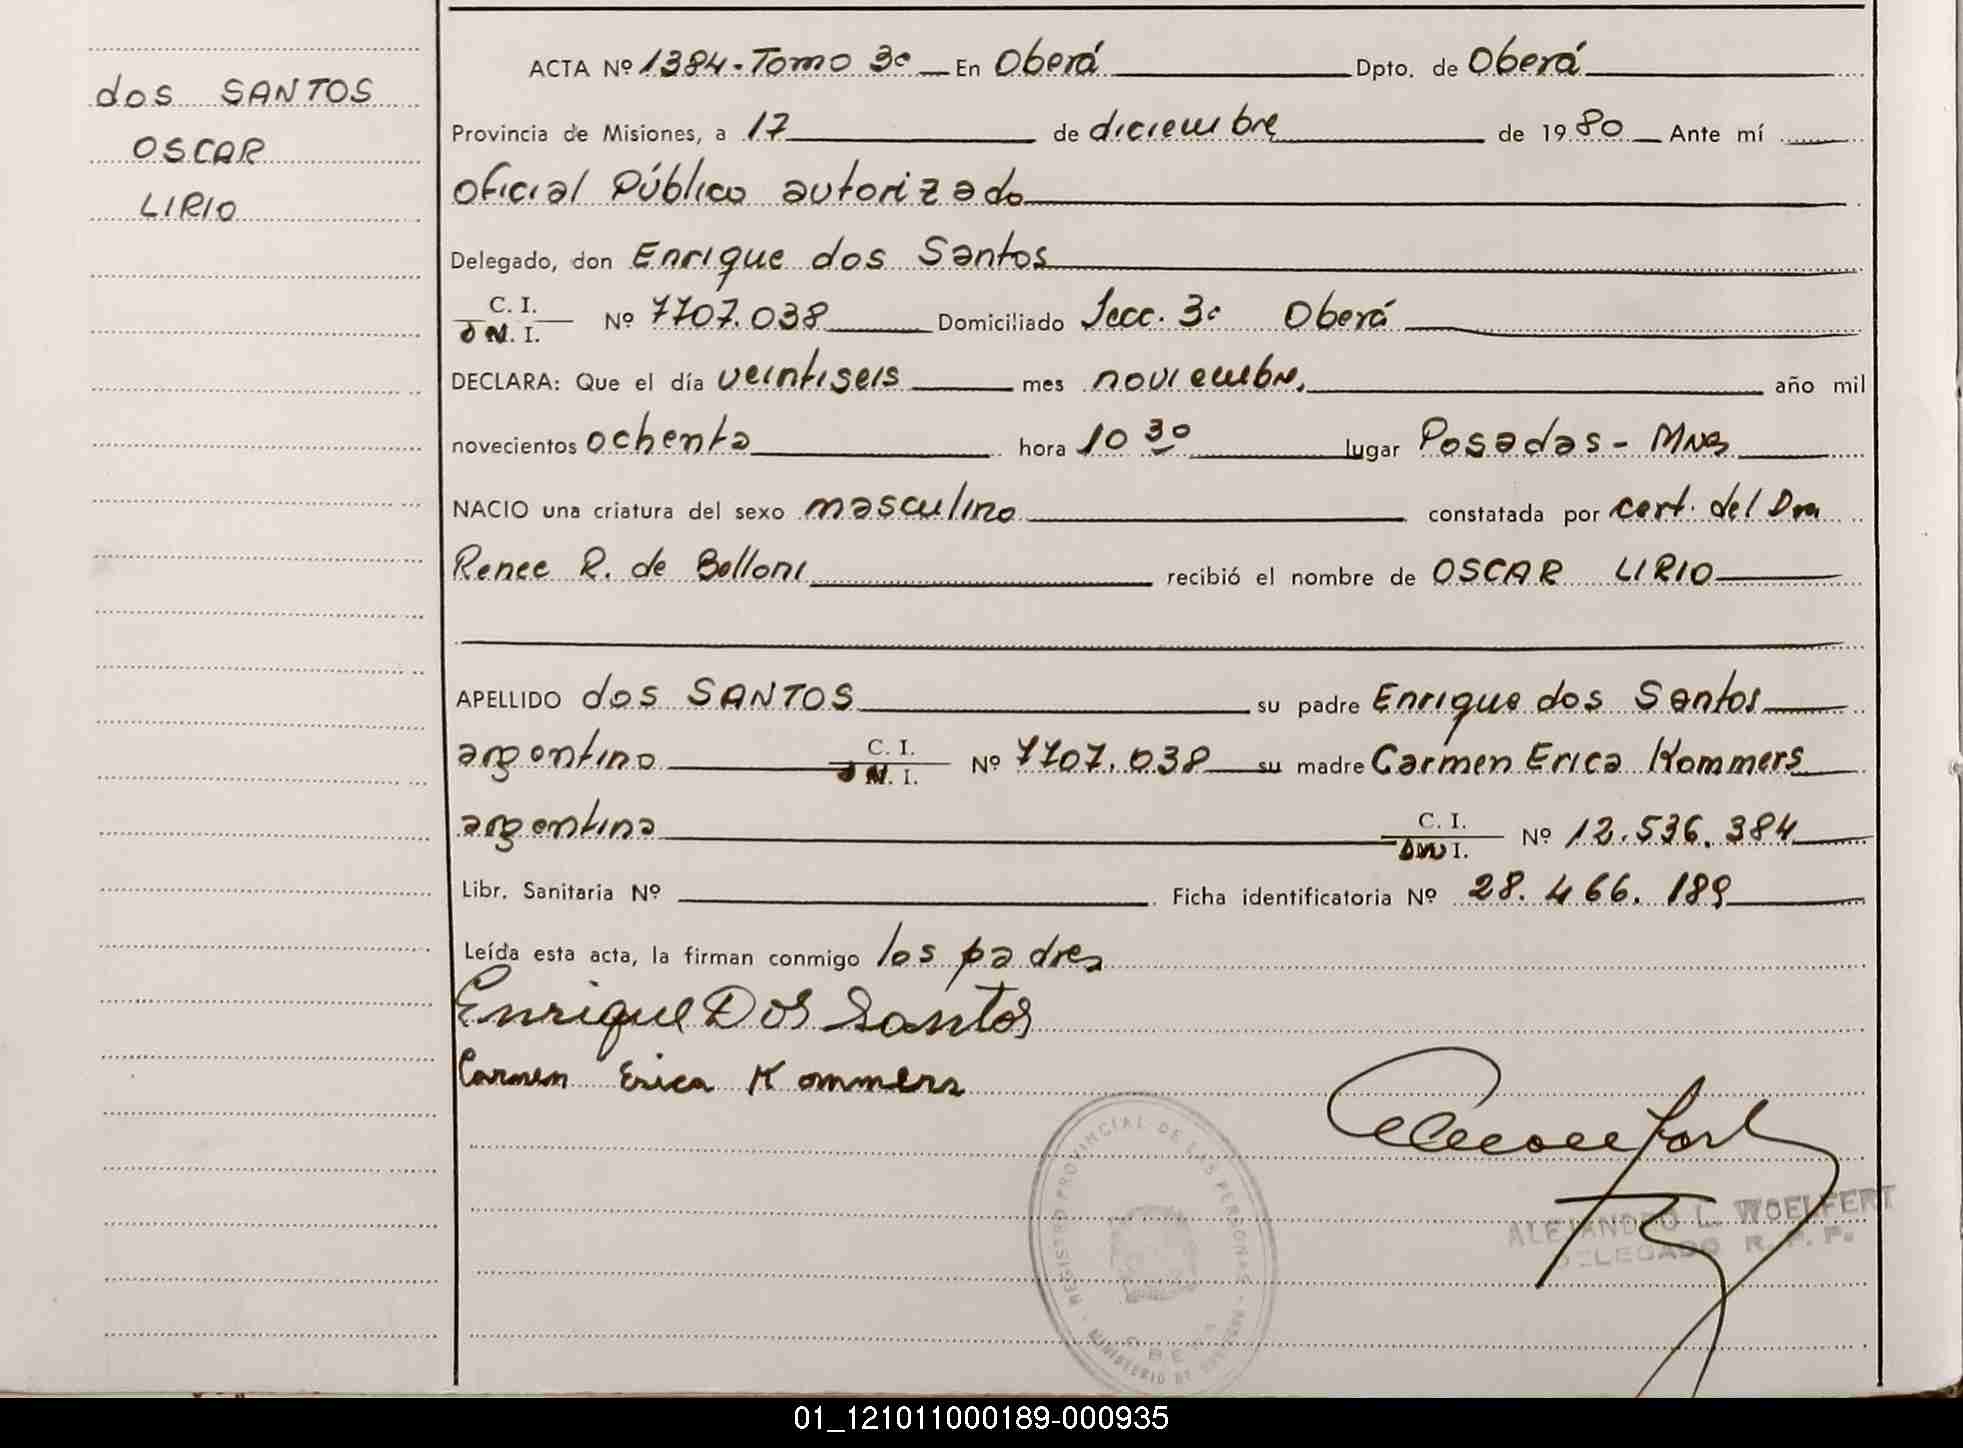 dos SANTOS
OSCAR
LIRIO
ACTA Nº 1384-Tomo 3º En Oberá Dpto. de Oberá
Provincia de Misiones, a 17 de diciembre de 1980 Ante mí
Oficial Público autorizado
Delegado, don Enrique dos Santos
C. I.
D N. I. Nº 7707.038 Domiciliado Secc. 3º Oberá
DECLARA: Que el día veintiseis mes noviembre, año mil
novecientos ochenta hora 10 30 lugar Posadas - Mns
NACIO una criatura del sexo masculino constatada por cert. del Dra
Renee R. de Belloni recibió el nombre de OSCAR LIRIO
APELLIDO dos SANTOS su padre Enrique dos Santos
argentino C. I.
D N. I. Nº 7707.038 su madre Carmen Erica Kommers
argentina C. I.
DN I. Nº 12.536.384
Libr. Sanitaria Nº Ficha identificatoria Nº 28.466.189
Leída esta acta, la firman conmigo los padres
Enrique Dos Santos
Carmen Erica Kommers
REGISTRO PROVINCIAL DE LAS PERSONAS - MINISTERIO DE GOBIERNO
OBERA
ALEJANDRO L. WOELFERT
DELEGADO R. P. P.
01_121011000189-000935